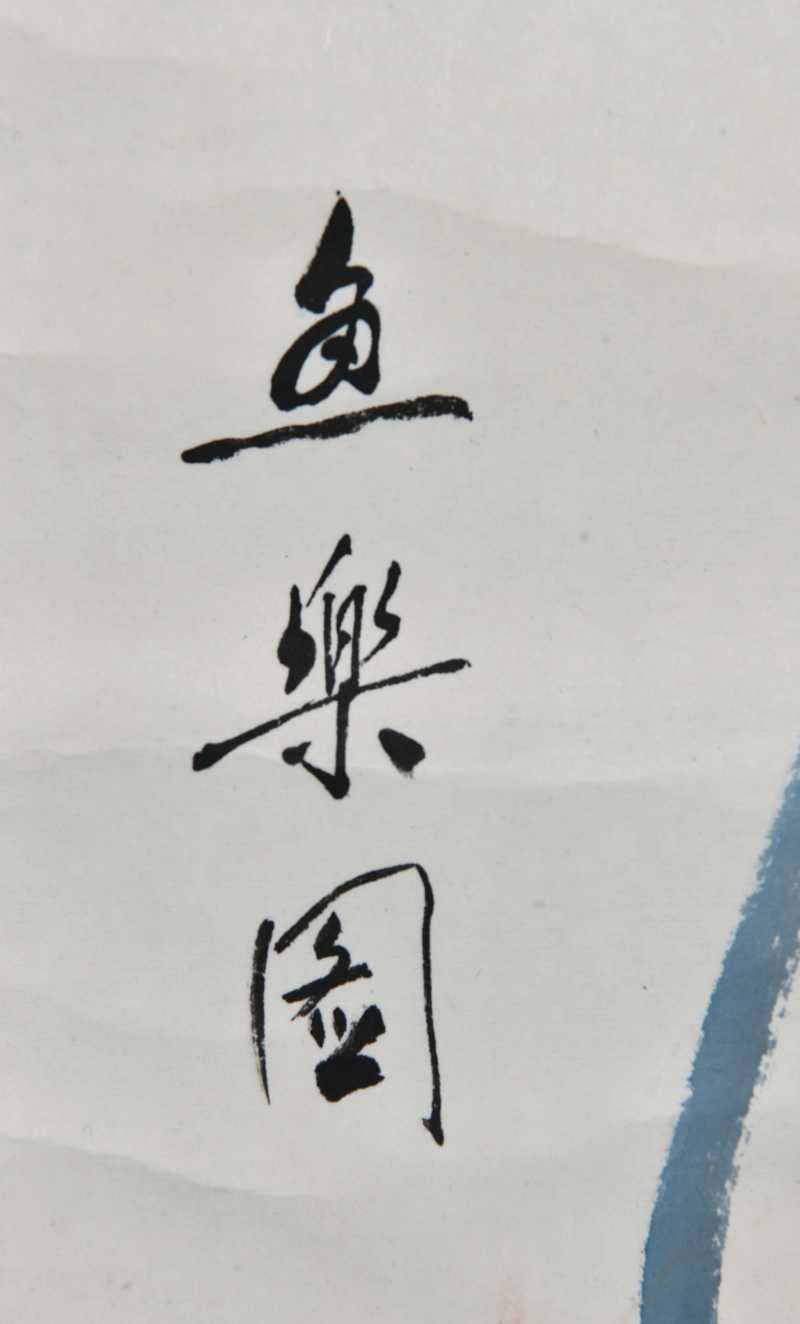 魚樂圖